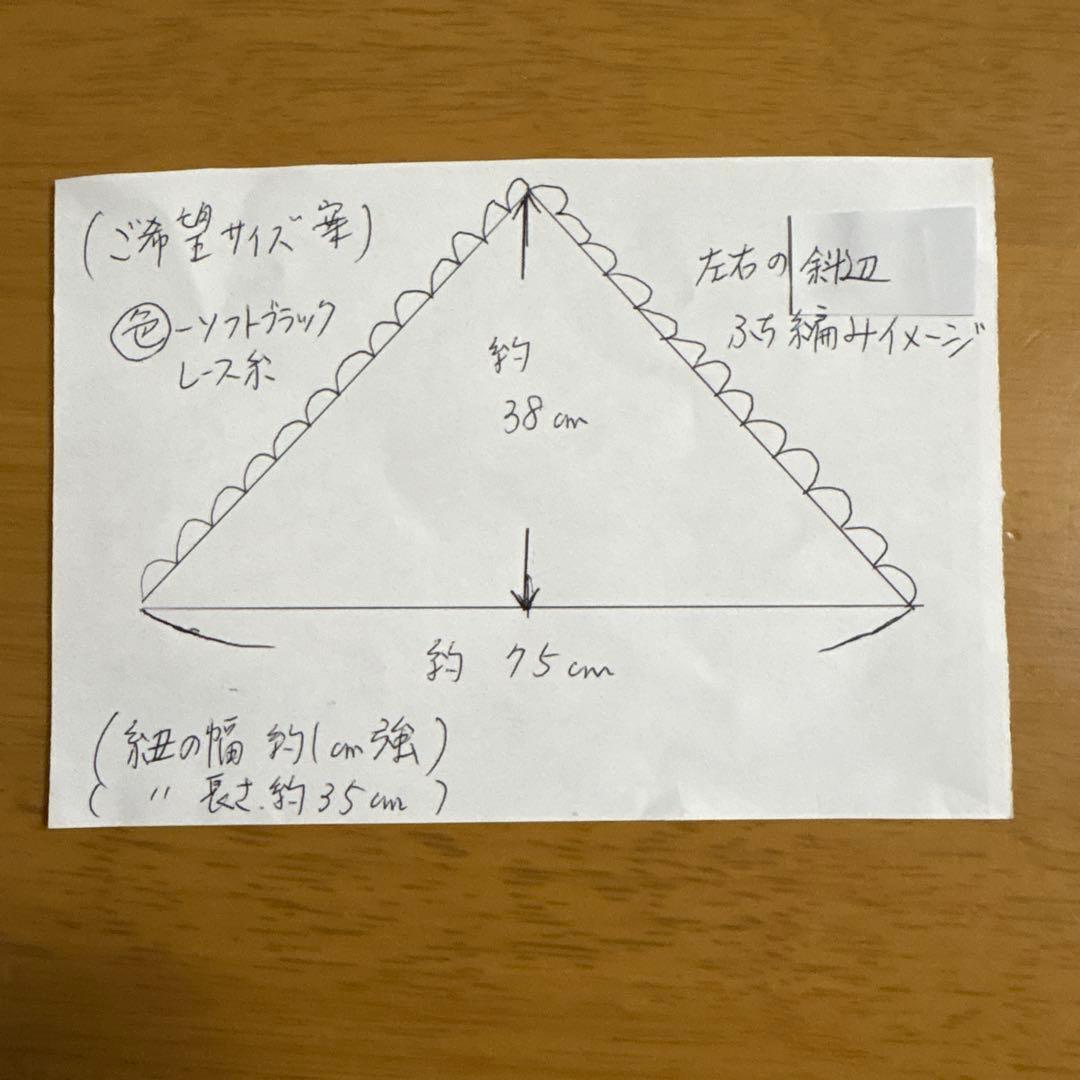 (ご希望サイズ案)
色-ソフトブラック
レース糸
左右の斜辺
ふち編みイメージ
約
38cm
約 75cm
(紐の幅 約1cm強)
( 〃 長さ.約35cm )